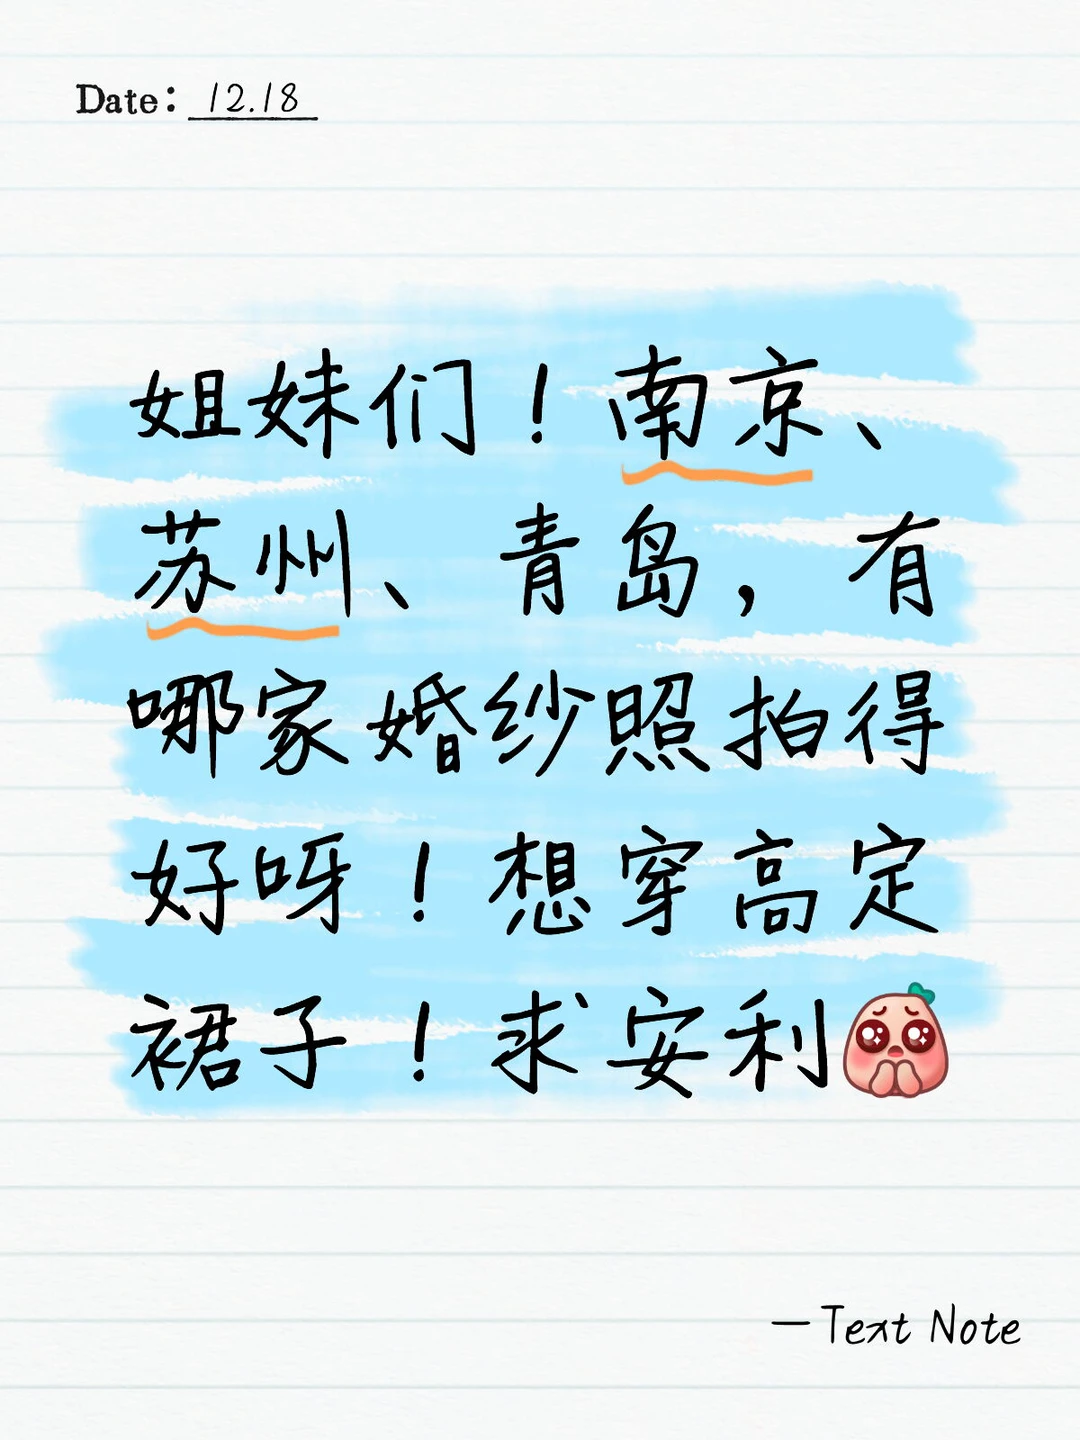 Date: 12.18
姐妹们！南京、
苏州、青岛，有
哪家婚纱照拍得
好呀！想穿高定
裙子！求安利
—Text Note